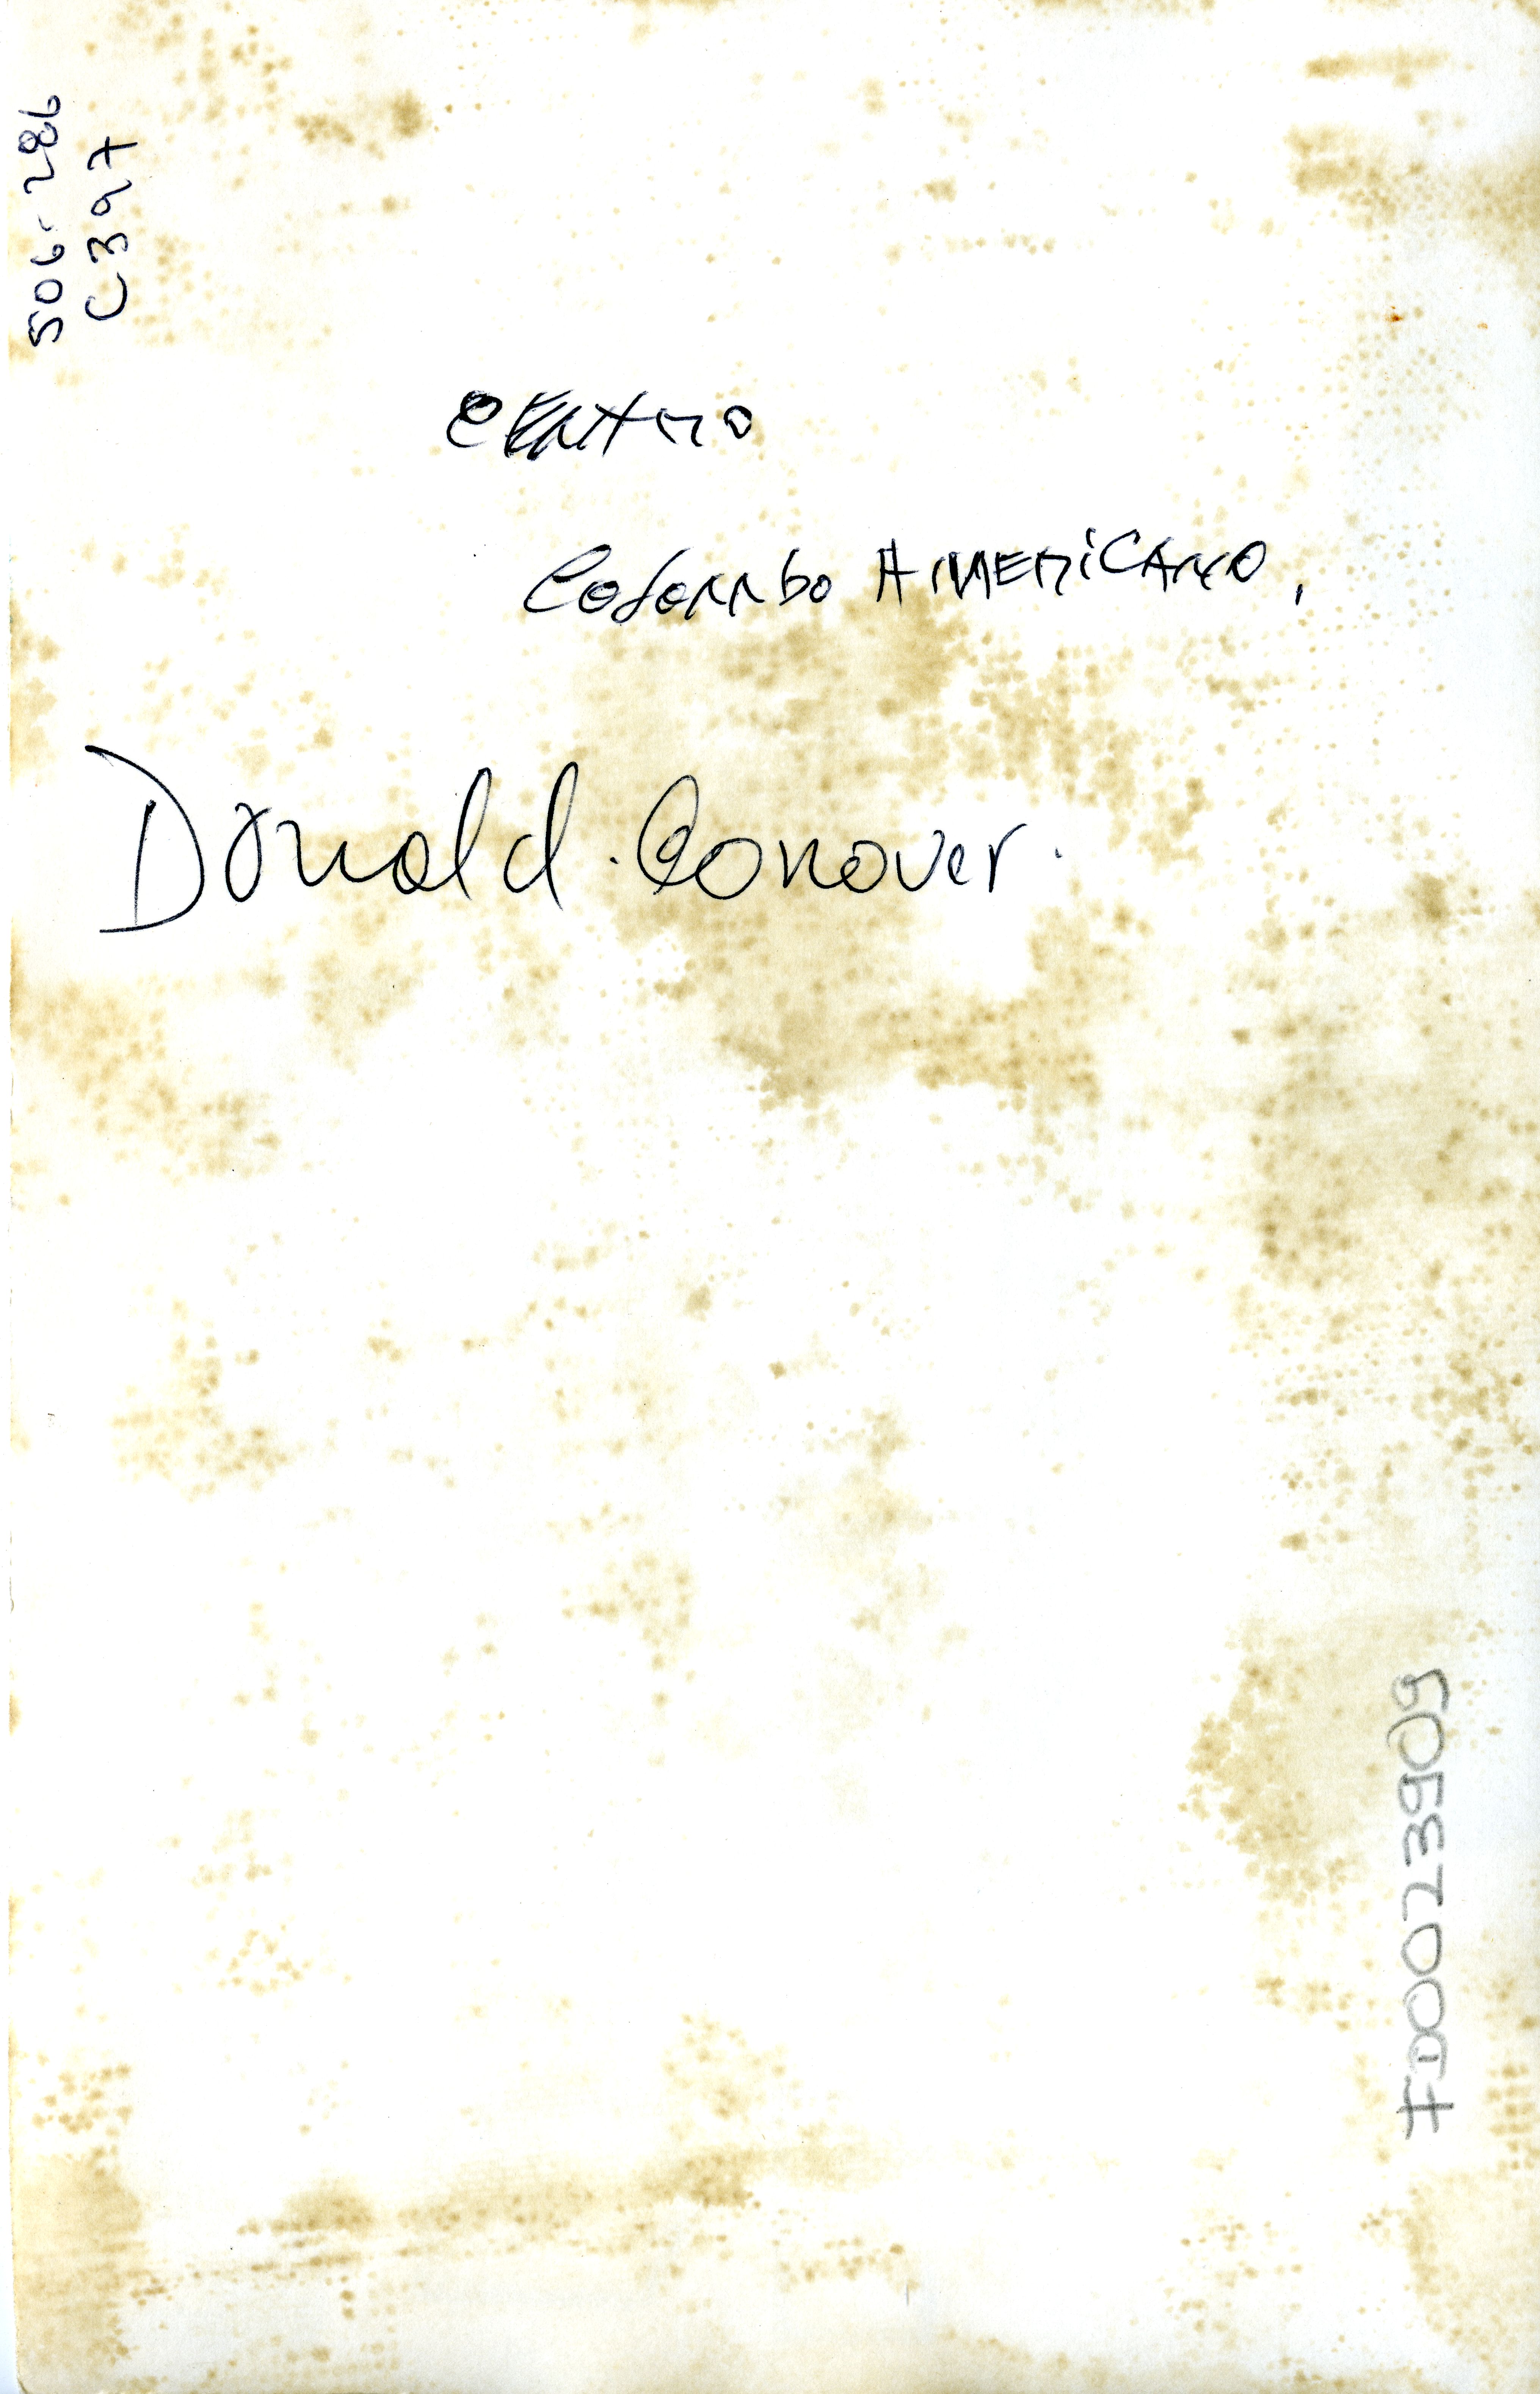 506-286
C397
CENTRO
Colombo AMERICANO,
Donald. Conover.
FD0023909